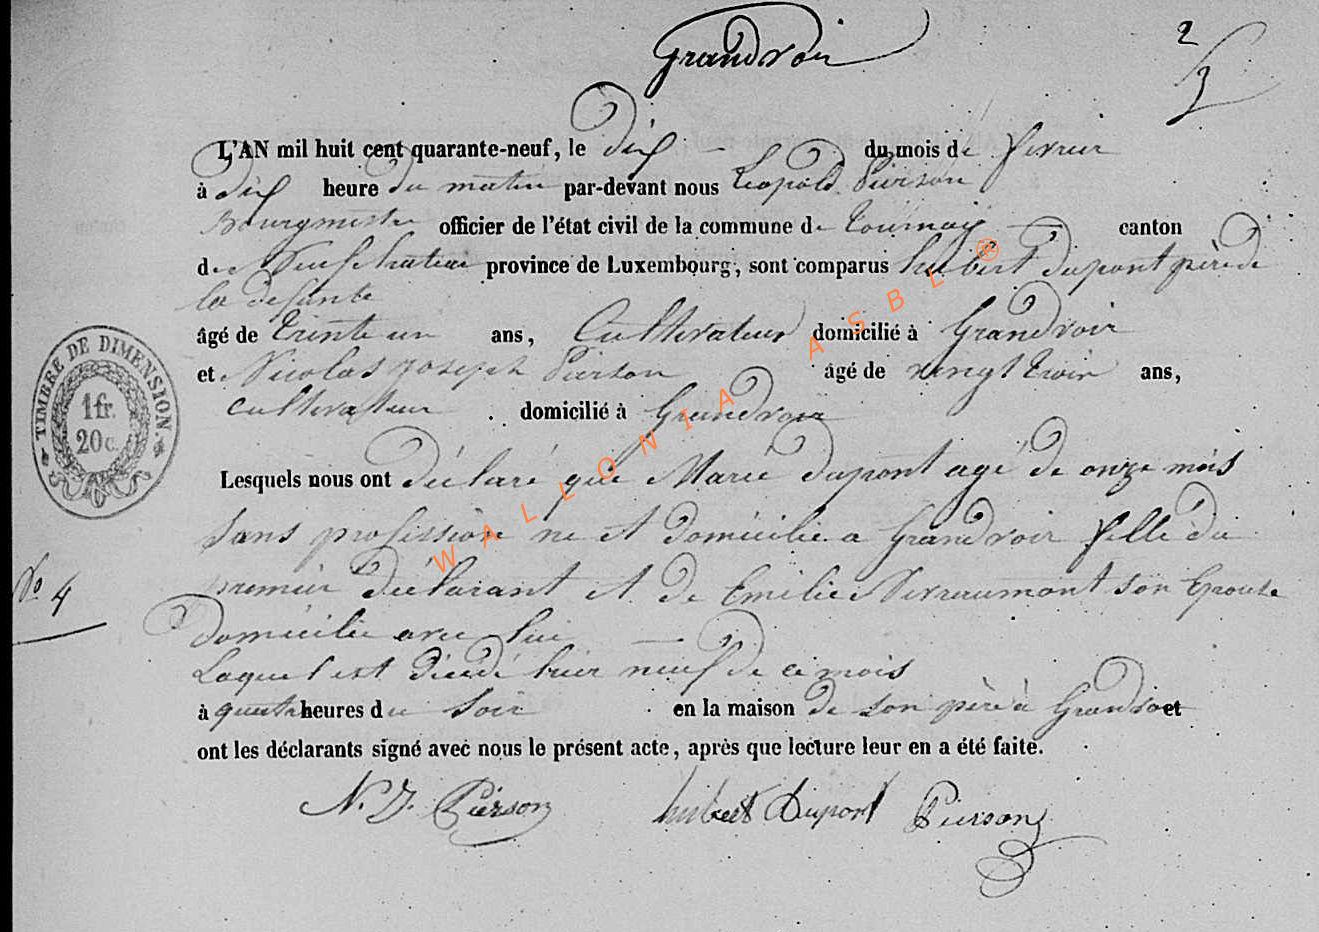 Grandvoir
2
3
L'AN mil huit cent quarante-neuf, le dix du mois de fevrier
à dix heure du matin par-devant nous Leopold Pierson
Bourgmestre officier de l'état civil de la commune de Tournay canton
de Neufchateau province de Luxembourg, sont comparus hubert dupont père de
la defunte
âgé de trente un ans, Cultivateur domicilié à Grandvoir
et Nicolas joseph Pierson âgé de vingt troix ans,
cultivateur domicilié à Grandvoir
Lesquels nous ont déclaré que Marie dupont agé de onze mois
sans profission ne et domicilie a Grandvoir fille du
premier déclarant et de Emilie son Epouse
domicilie avec lui
Laquel est décédé hier neuf de ce mois
à quatre heures du soir en la maison de son père à Grandvoir et
ont les déclarants signé avec nous le présent acte, après que lecture leur en a été faite.
N. J. Pierson hubert Dupont Pierson
TIMBRE DE DIMENSION
1 fr.
20 c.
No 4
WALLONIA ASBL ®